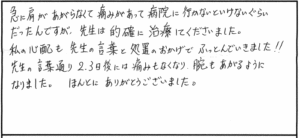 急に肩があがらなくて痛みがあって病院に行かないといけないぐらい
だったんですが、先生は的確に治療してくださいました。
私の心配も先生の言葉と処置のおかげでふっとんでいきました!!
先生の言葉通り2.3日後には痛みもなくなり、腕もあがるように
なりました。ほんとにありがとうございました。